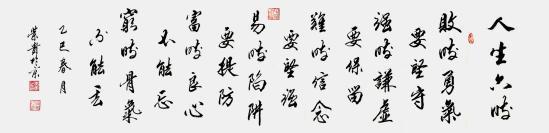 人生六時
敗時勇氣
要堅守
强時謙虛
要保留
難時信念
要堅强
易時陷阱
要提防
富時良心
不能忘
窮時骨氣
不能丢
乙巳春月
於京